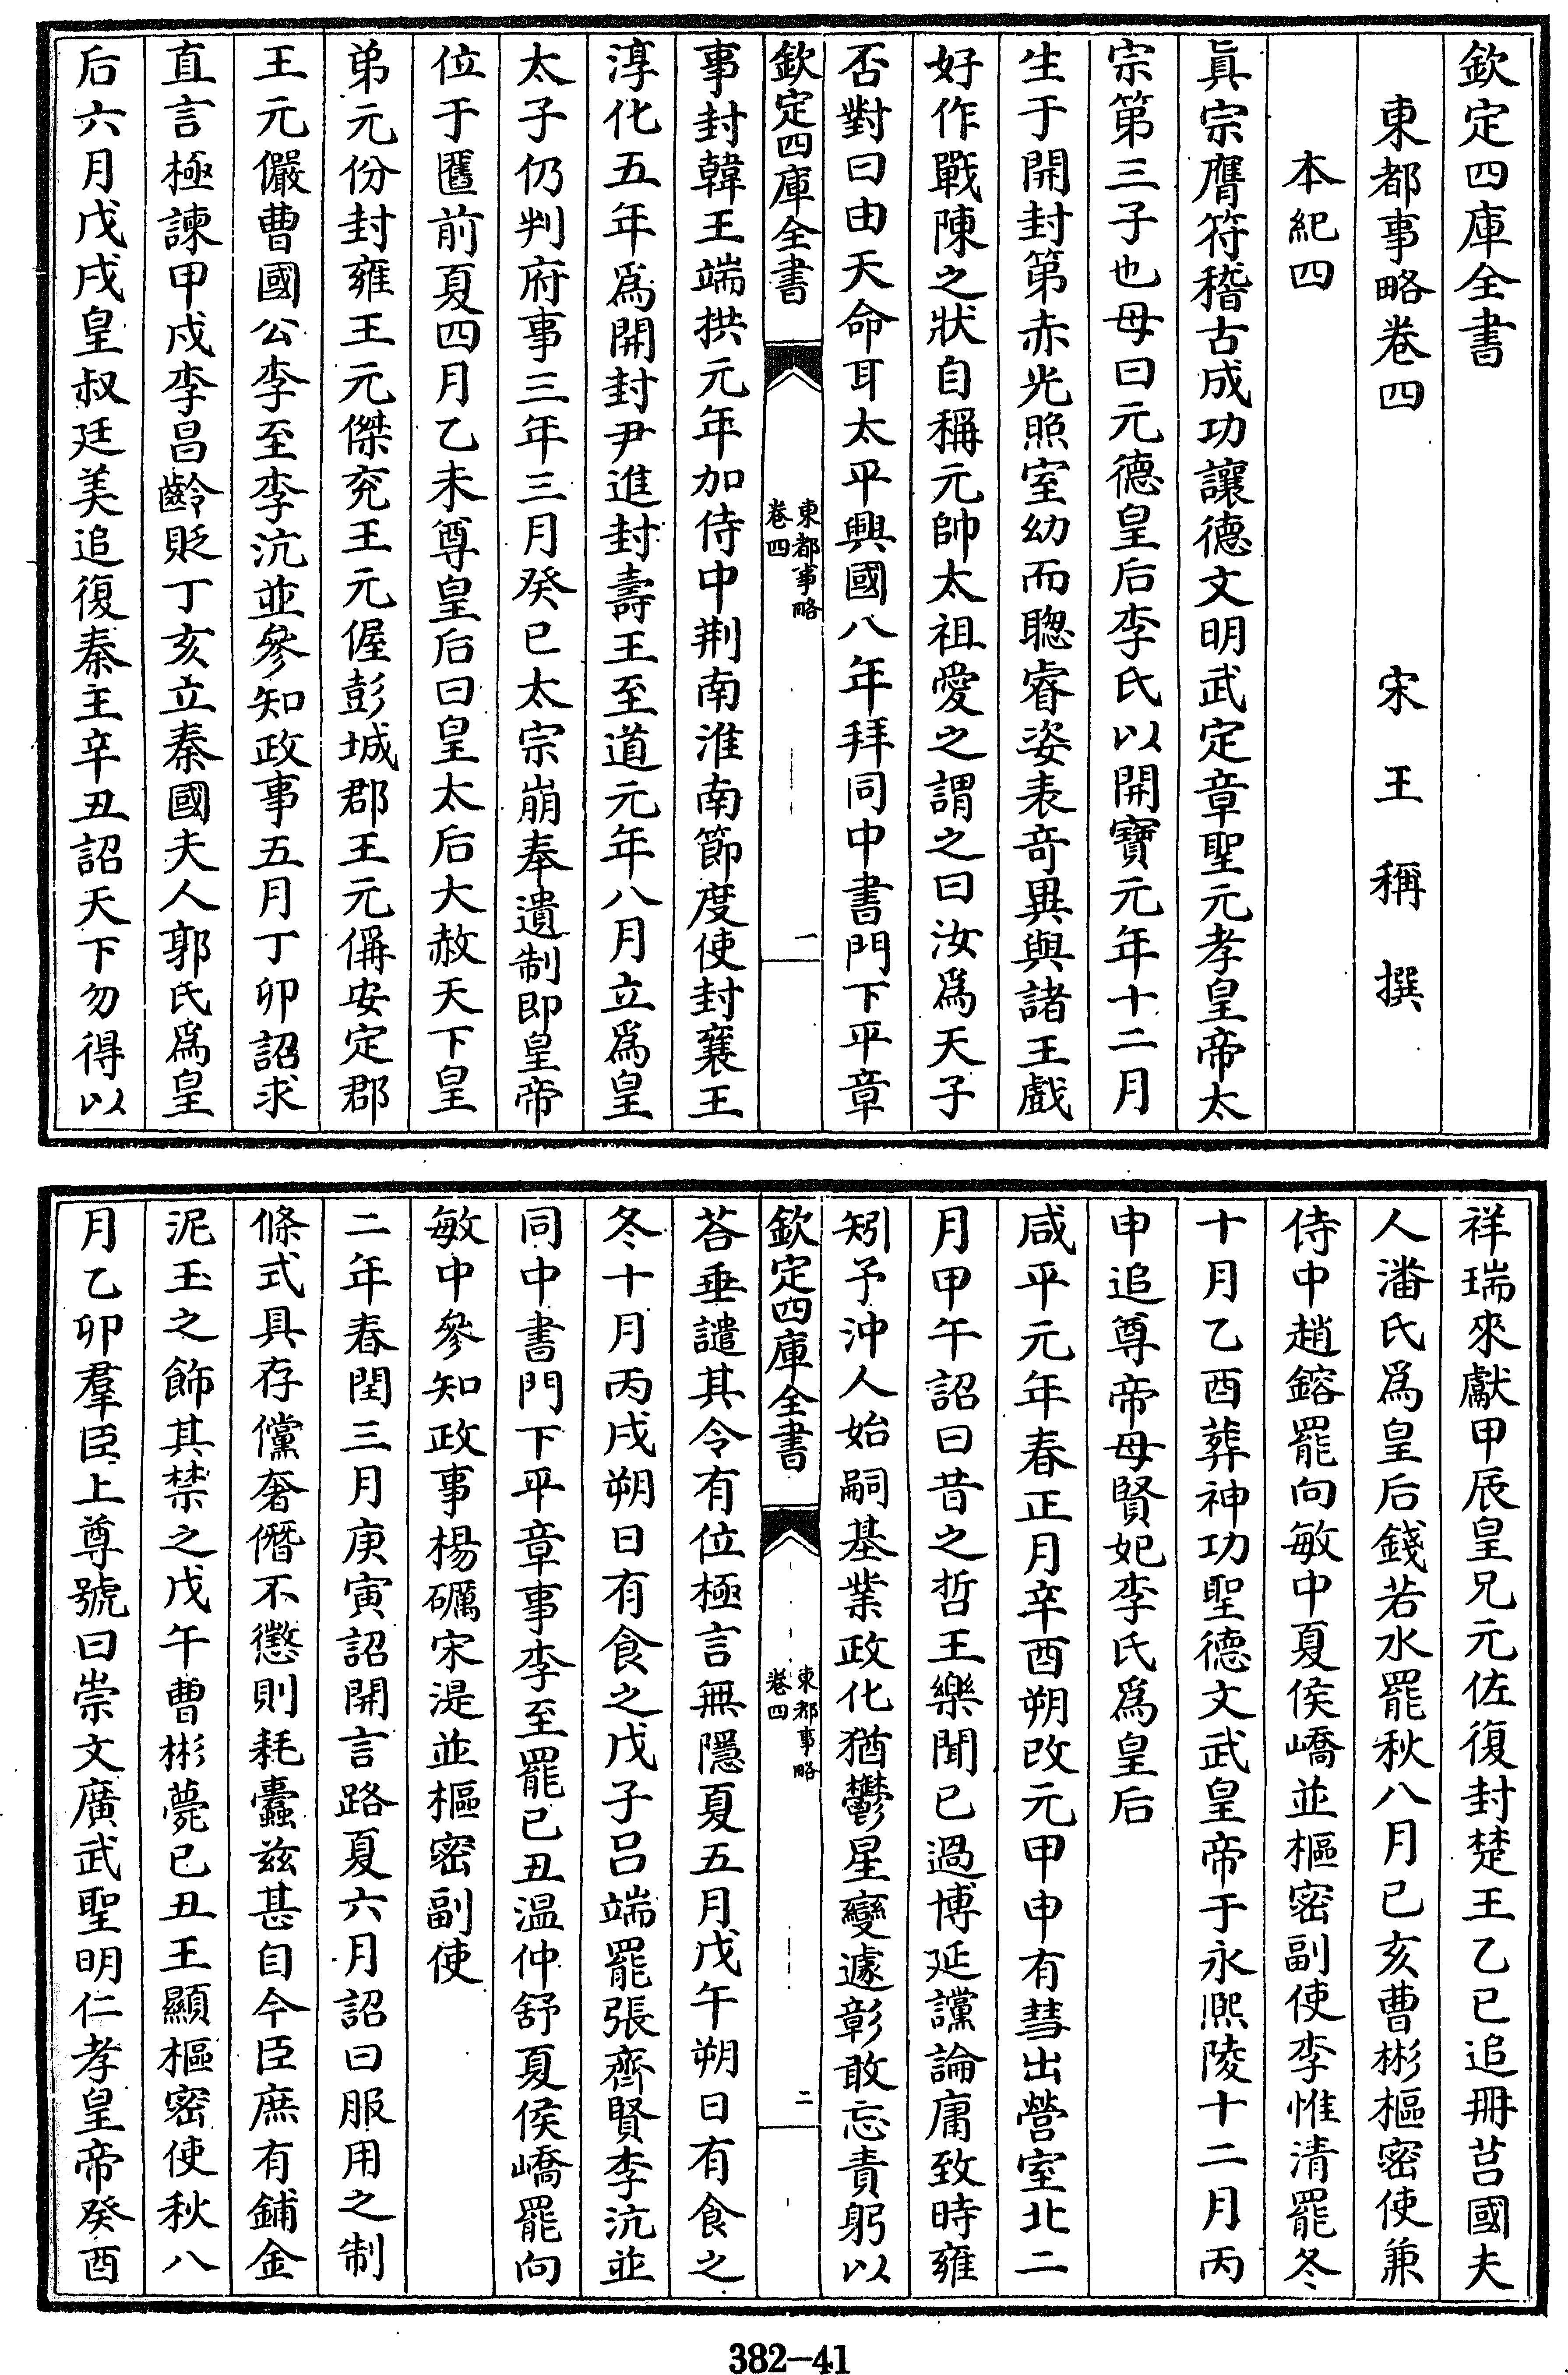 欽定四庫全書
東都事略卷四　宋　王　稱　撰
本紀四
眞宗膺符稽古成功讓德文明武定章聖元孝皇帝太
宗第三子也母曰元德皇后李氏以開寶元年十二月
生于開封第赤光照室幼而聰睿姿表竒異與諸王戲
好作戰陳之狀自稱元帥太祖愛之謂之曰汝爲天子
否對曰由天命耳太平興國八年拜同中書門下平章
欽定四庫全書
東都事略
卷四
一
事封韓王端拱元年加侍中荆南淮南節度使封襄王
淳化五年爲開封尹進封壽王至道元年八月立爲皇
太子仍判府事三年三月癸巳太宗崩奉遺制即皇帝
位于匶前夏四月乙未尊皇后曰皇太后大赦天下皇
弟元份封雍王元傑兖王元偓彭城郡王元偁安定郡
王元儼曹國公李至李沆並參知政事五月丁卯詔求
直言極諫甲戍李昌齡貶丁亥立秦國夫人郭氏爲皇
后六月戊戌皇叔廷美追復秦王辛丑詔天下勿得以
祥瑞來獻甲辰皇兄元佐復封楚王乙巳追冊莒國夫
人潘氏爲皇后錢若水罷秋八月己亥曹彬樞密使兼
侍中趙鎔罷向敏中夏侯嶠並樞密副使李惟清罷冬
十月乙酉葬神功聖德文武皇帝于永熙陵十二月丙
申追尊帝母賢妃李氏爲皇后
咸平元年春正月辛酉朔改元甲申有彗出營室北二
月甲午詔曰昔之哲王樂聞已過博延讜論庸致時雍
矧予沖人始嗣基業政化猶鬱星變遽彰敢忘責躬以
欽定四庫全書
東都事略
卷四
二
荅垂譴其令有位極言無隱夏五月戊午朔日有食之
冬十月丙戌朔日有食之戊子呂端罷張齊賢李沆並
同中書門下平章事李至罷已丑温仲舒夏侯嶠罷向
敏中參知政事楊礪宋湜並樞密副使
二年春閏三月庚寅詔開言路夏六月詔曰服用之制
條式具存儻奢僭不懲則耗蠹兹甚自今臣庶有鋪金
泥玉之飾其禁之戊午曹彬薨已丑王顯樞密使秋八
月乙卯羣臣上尊號曰崇文廣武聖明仁孝皇帝癸酉
382-41